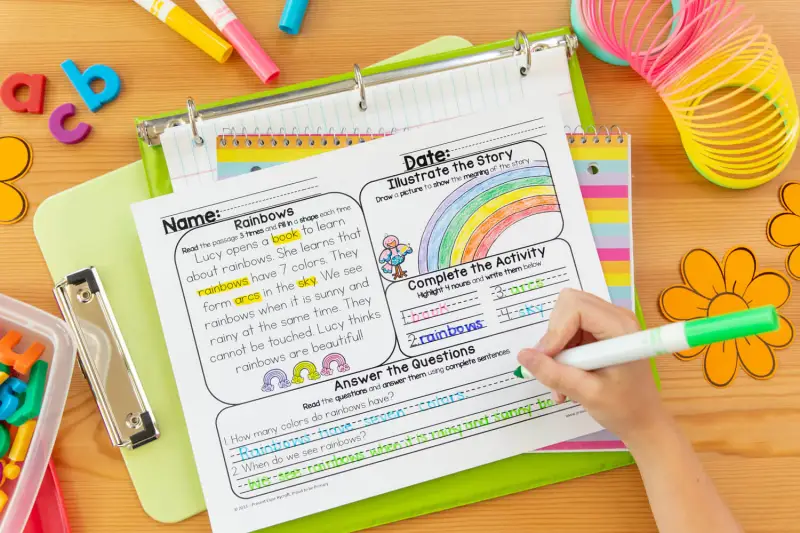 a b c
Name:
Date:
Rainbows
Read the passage 3 times and fill in a shape each time
Lucy opens a book to learn
about rainbows. She learns that
rainbows have 7 colors. They
form arcs in the sky. We see
rainbows when it is sunny and
rainy at the same time. They
cannot be touched. Lucy thinks
rainbows are beautiful!
Illustrate the Story
Draw a picture to show the meaning of the story
Complete the Activity
Highlight 4 nouns and write them below
1. book
2. rainbows
3. arcs
4. sky
Answer the Questions
Read the questions and answer them using complete sentences
1. How many colors do rainbows have?
Rainbows seven colors
2. When do we see rainbows?
We see rainbows when it is rainy and sunny